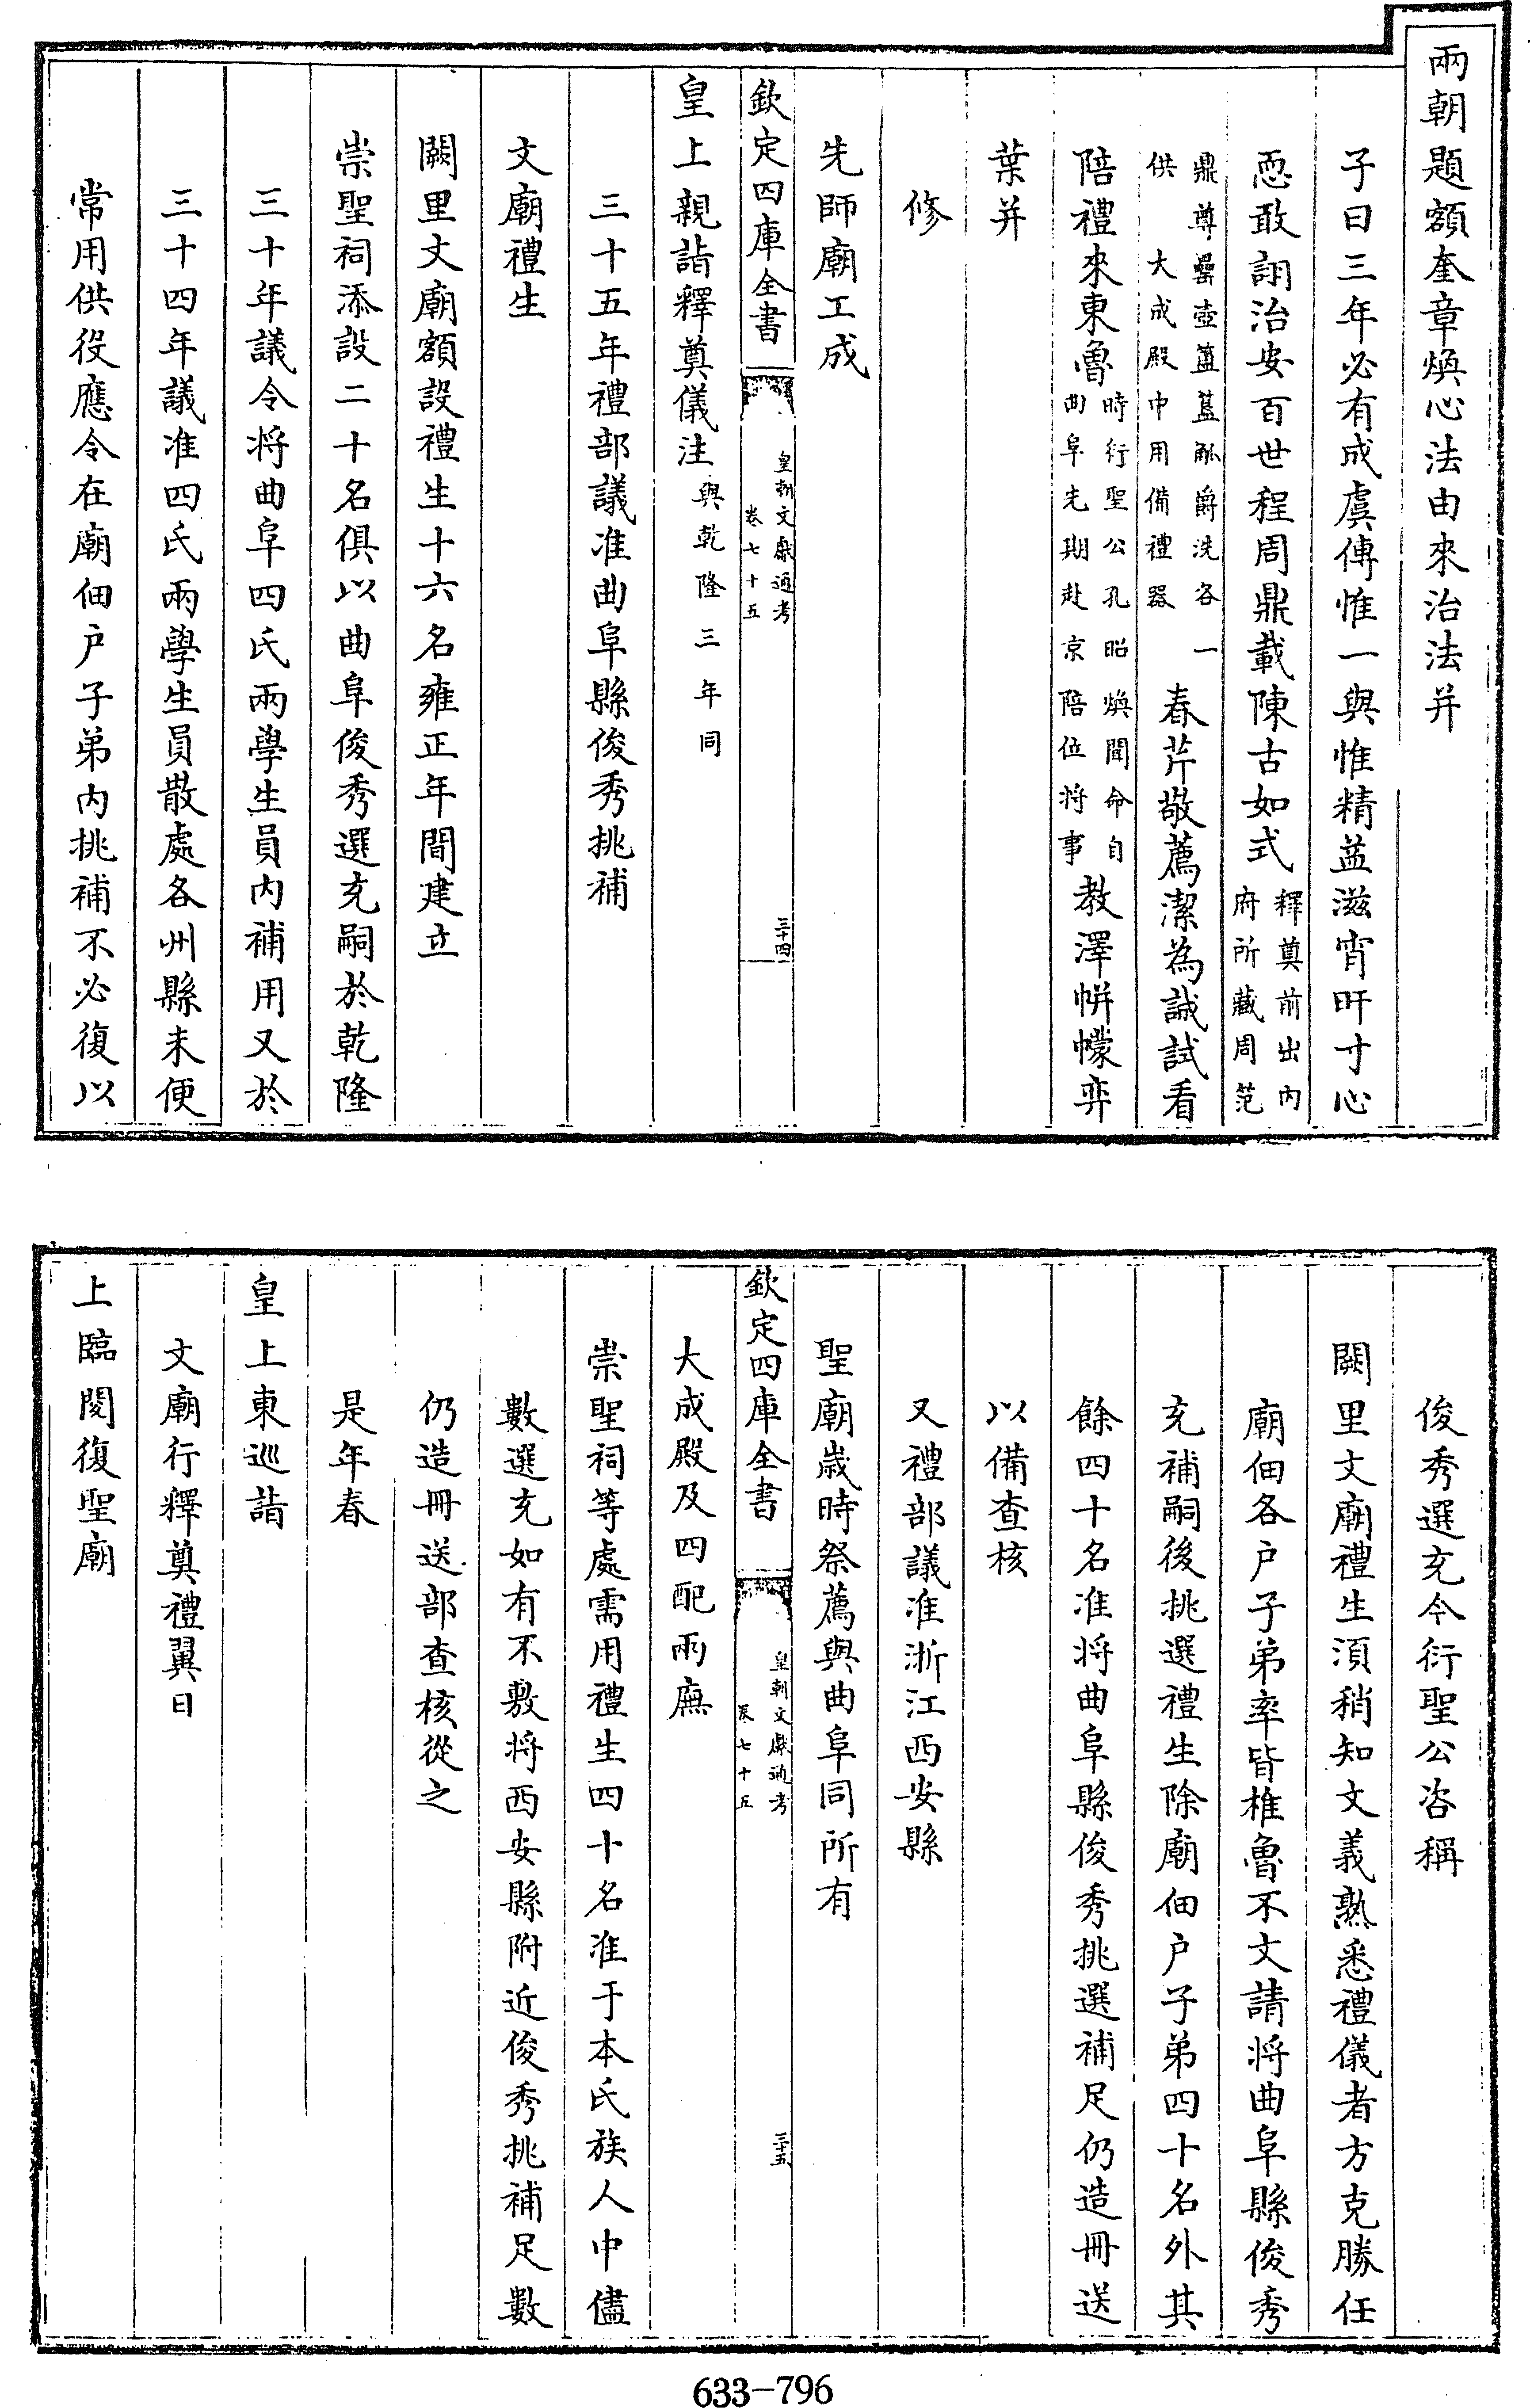 兩朝題額奎章煥心法由來治法并
子曰三年必有成虞傳惟一與惟精益滋宵旰寸心
恧敢詡治安百世程周鼎載陳古如式釋奠前出內府所藏周范
鼎尊罍壺簠簋觚爵洗各一供大成殿中用備禮器春芹敬薦潔為誠試看
陪禮來東魯時衍聖公孔昭煥聞命自曲阜先期赴京陪位將事教澤帡幪弈
葉并
修
先師廟工成
欽定四庫全書 皇朝文獻通考卷七十五 三十四
皇上親詣釋奠儀注與乾隆三年同
三十五年禮部議准曲阜縣俊秀挑補
文廟禮生
闕里文廟額設禮生十六名雍正年間建立
崇聖祠添設二十名俱以曲阜俊秀選充嗣於乾隆
三十年議令將曲阜四氏兩學生員內補用又於
三十四年議准四氏兩學生員散處各州縣未便
常用供役應令在廟佃户子弟內挑補不必復以
俊秀選充今衍聖公咨稱
闕里文廟禮生須稍知文義熟悉禮儀者方克勝任
廟佃各户子弟率皆椎魯不文請將曲阜縣俊秀
充補嗣後挑選禮生除廟佃户子弟四十名外其
餘四十名准將曲阜縣俊秀挑選補足仍造冊送
以備查核
又禮部議准浙江西安縣
聖廟歲時祭薦與曲阜同所有
欽定四庫全書 皇朝文獻通考卷七十五 三十五
大成殿及四配兩廡
崇聖祠等處需用禮生四十名准于本氏族人中儘
數選充如有不敷將西安縣附近俊秀挑補足數
仍造冊送部查核從之
是年春
皇上東巡詣
文廟行釋奠禮翼日
上臨閱復聖廟
633-796